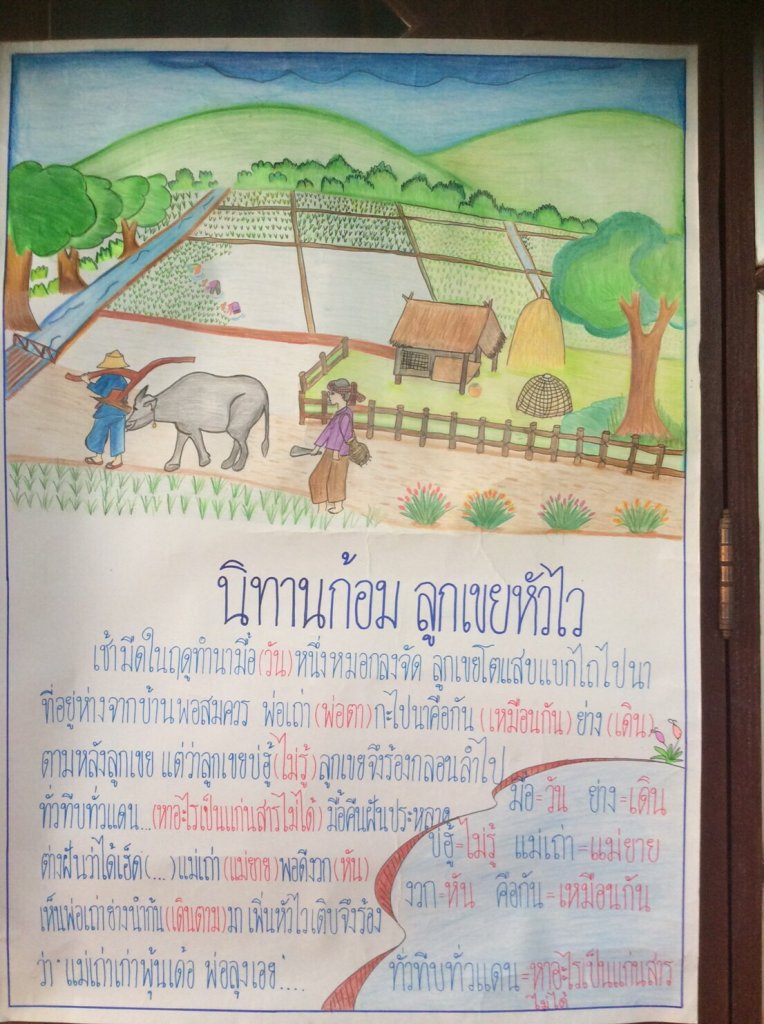 นิทานก้อม ลูกเขยหัวไว
เช้ามืดในฤดูทำนามื้อ(วัน)หนึ่งหมอกลงจัด ลูกเขยโตแสบแบกไถไปนา
ที่อยู่ห่างจากบ้านพอสมควร พ่อเถ่า (พ่อตา)กะไปนาคือกัน (เหมือนกัน) ย่าง (เดิน)
ตามหลังลูกเขย แต่ว่าลูกเขยบ่ฮู้(ไม่รู้)ลูกเขยจึงร้องกลอนลำไป
ทั่วทีบทั่วแดน...(หาอะไรเป็นแก่นสารไม่ได้)มื้อคืนฝันประหลาด
ต่างฝันว่าได้เฮ็ด(...)แม่เถ่า(แม่ยาย)พอดีงวก(หัน)
เห็นพ่อเถ่าย่างนำก้น(เดินตาม)มา เพิ่นหัวไวเติบจึงร้อง
ว่า"แม่เถ่าเก่าพุ้นเด้อ พ่อลุงเอย"....
มื้อ=วัน ย่าง=เดิน
บ่ฮู้=ไม่รู้ แม่เถ่า=แม่ยาย
งวก=หัน คือกัน=เหมือนกัน
ทั่วทีบทั่วแดน=หาอะไรเป็นแก่นสาร
ไม่ได้